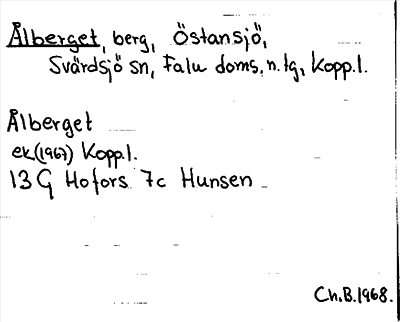 Ålberget, berg, Östansjö,
Svärdsjö sn, Falu doms. n. tg, Kopp.l.
Ålberget
ek(1967) Kopp.l.
13 G Hofors 7c Hunsen
Ch.B.1968.